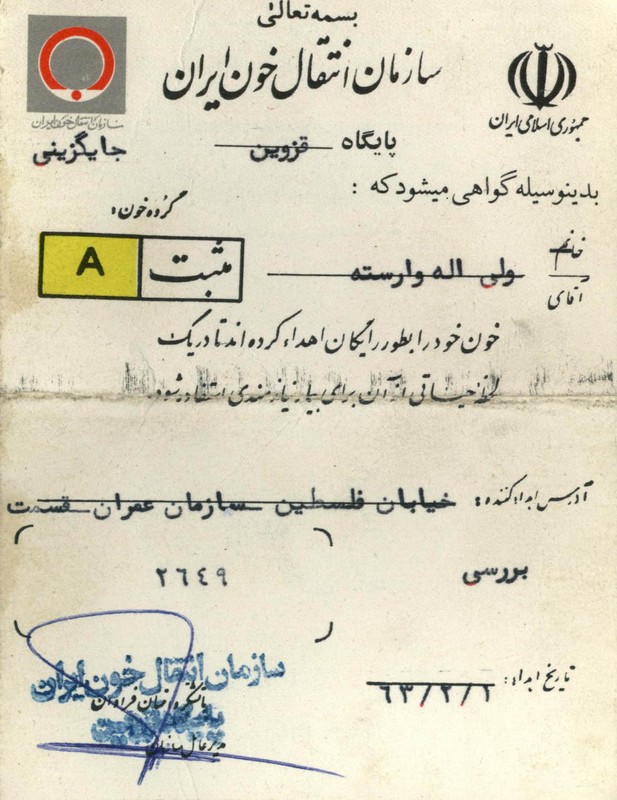 بسمه تعالی
سازمان انتقال خون ایران
جمهوری اسلامی ایران
سازمان انتقال خون ایران
پایگاه قزوین
جایگزینی
بدینوسیله گواهی میشود که :
گروه خون:
A مثبت
خانم
آقای
ولی اله وارسته
خون خود را بطور رایگان اهداء کرده اند تا در یک
لحظه حیاتی از آن برای بیمار نیازمندی استفاده شود.
آدرس اهداء کننده: خیابان فلسطین سازمان عمران قسمت
بررسی
۲٦٤۹
تاریخ اهداء: ٦٣/٢/١
سازمان انتقال خون ایران
با تشکر و
پایگاه قزوین
مدیر عامل سازمان